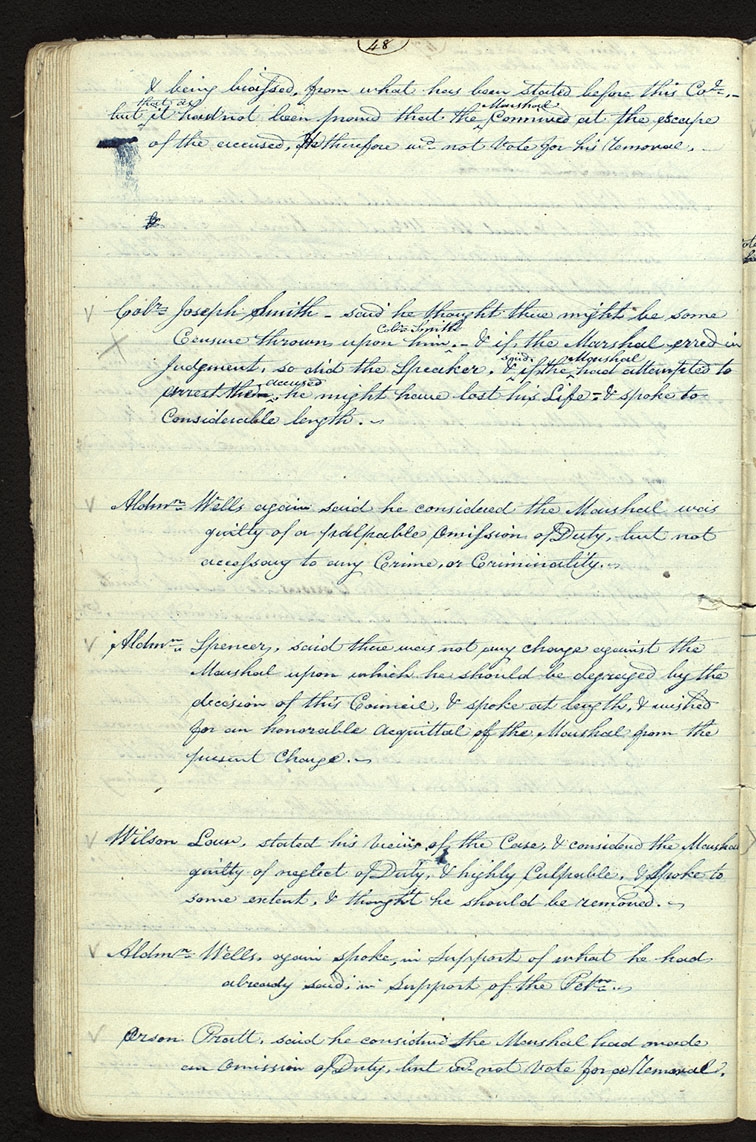 48
& being biassed, from what has been stated before this Col. -
but that as it had not been proved that the Marshal Connived at the escape
of the accused, He therefore wd. not Vote for his removal. -
Colo. Joseph Smith - said he thought there might be some
Censure thrown upon him Colo. Smith. - & if the Marshal erred in
Judgment, so did the Speaker, & said, if the Marshal had attempted to
arrest the accused, he might have lost his Life - & spoke to
Considerable length. -
Aldmn. Wells again said he considered the Marshal was
guilty of a palpable Omission of Duty, but not
accessary to any Crime, or Criminality. -
Aldmn. Spencer, said there was not any charge against the
Marshal upon which he should be degraged by the
decision of this Council, & spoke at length, & wished
for an honorable acquittal of the Marshal from the
present Charge. -
Wilson Law, stated his views of the Case, & considerd the Marshal
guilty of neglect of Duty, & highly Culpable, & spoke to
some extent, & thought he should be removed. -
Aldmn. Wells, again spoke in support of what he had
already said, in support of the Petn. -
Orson Pratt, said he considered the Marshal had made
an Omission of Duty, but wd. not Vote for a Removal.